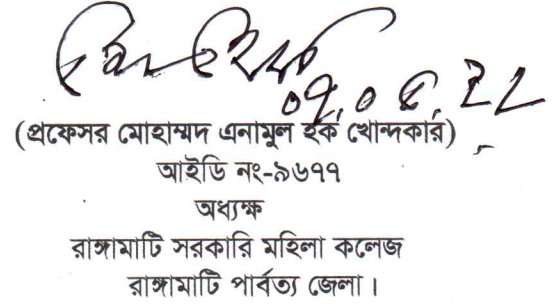 (প্রফেসর মোহাম্মদ এনামুল হক খোন্দকার)
আইডি নং-৯৬৭৭
অধ্যক্ষ
রাঙ্গামাটি সরকারি মহিলা কলেজ
রাঙ্গামাটি পার্বত্য জেলা।